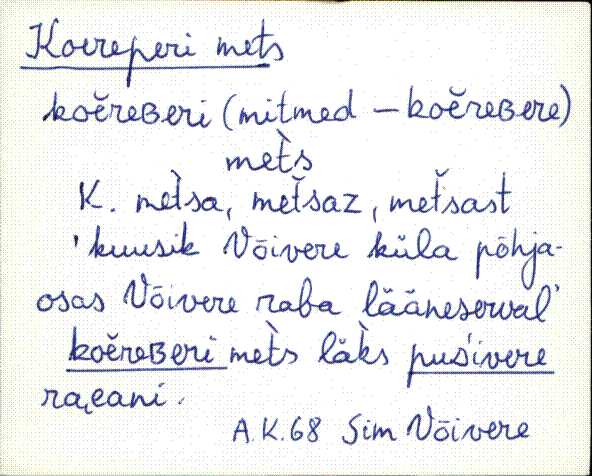 Koereperi mets
koĕreʙeri (mitmed – koĕreʙere)
met̀s
K. met̀sa, met̆saz, met̆sast
'kuusik Võivere küla põhja-
osas Võivere raba lääneserval'
koĕreʙeri met̀s läk̀s puśivere
raʙani.
A.K.68 Sim Võivere